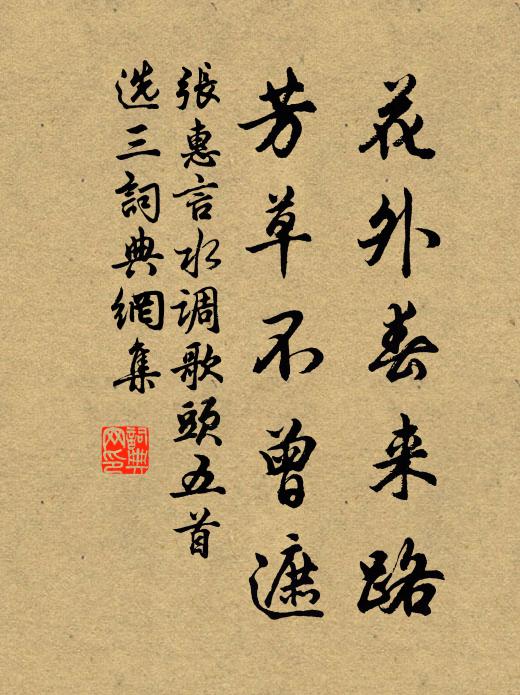 花外春来路
芳草不曾遮
張惠言水调歌頭五首
选三詞典網集
詞典网印